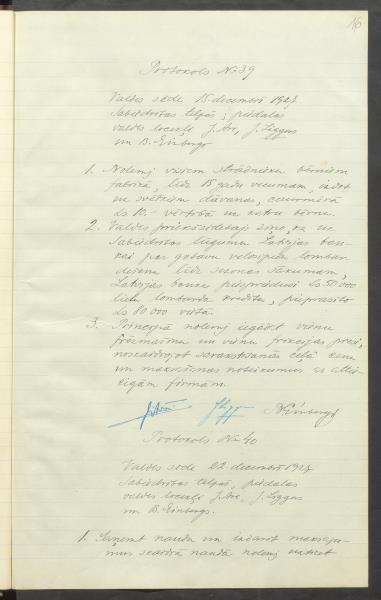 16
Protokols № 39
Valdes sēde 15. decembrī 1927.
Sabiedrības telpās, piedalās
valdes locekļi J. Are, J. Liggus
un B. Einbergs
1. Nolemj visiem strādnieku bērniem
fabrikā, līdz 15 gadu vecumam, dot
uz svētkiem dāvanas, caurmērā
Ls 10.- vērtībā uz katru bērnu.
2. Valdes priekšsēdētājs ziņo, ka uz
Sabiedrības lūgumu Latvijas ban-
kai par gatavu velosipēdu lombar-
dēšanu līdz sezonas sākumam,
Latvijas banka piespriedusi Ls 50 000
lielu lombarda kredītu, pieprasīto
Ls 80 000 vietā.
3. Principā nolemj iegādāt vienu
frēzmašīnu un vienu frikcijas presi,
noskaidrojot sarakstīšanās ceļā cenu
un maksāšanas noteikumus ar attie-
cīgām firmām.
B. Einbergs
Protokols № 40
Valdes sēde 22. decembrī 1927.
Sabiedrības telpās, piedalās
valdes locekļi J. Are, J. Liggus
un B. Einbergs.
1. Saņemt naudu un izdarīt maksāju-
mus skaidrā naudā nolemj